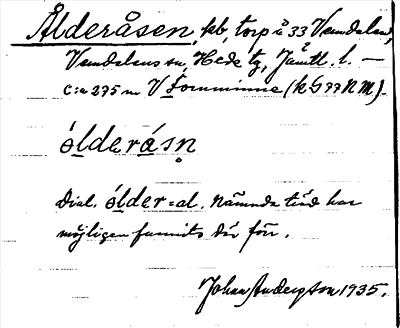 Ålderåsen, kb, torp å 33 Vemdalen,
Vemdalens sn, Hede tg, Jämtl. l. —
c:a 275 m V Fornminne (k G 77 N M).
ó̱lderá̱sn̥
Dial. ó̱lder = al. Nämnda träd har
möjligen funnits där förr.
Johan Anderson 1935.